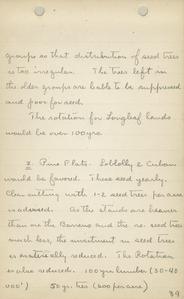 groups so that distribution of seed trees
is too irregular. The trees left in
the older groups are liable to be suppressed
and poor for seed.
The rotation for Longleaf lands
would be over 100 yrs.
2. Pine Flats. Loblolly & Cuban
would be favored. These seed yearly.
Clear cutting with 1-2 seed trees per acre
is advised. As the stands are heavier
than on the Barrens and the no. seed trees
much less, the investment in seed trees
is materially reduced. The Rotation
is also reduced. 100 yrs. lumber (30-40
000') 50 yr. ties (600 per acre)
39